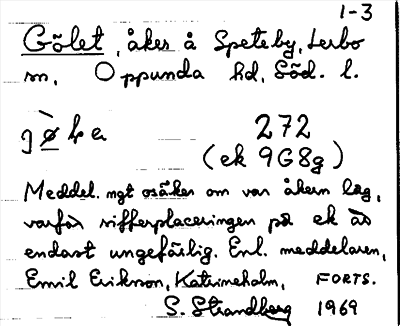 1-3
Gölet, åker å Speteby, Lerbo
sn, Oppunda hd, Söd. l.
272
(ek 9G8g)
Meddel. ngt osäker om var åkern låg,
varför siffferplaceringen på ek är
endast ungefärlig. Enl. meddelaren,
Emil Erikson, Katrineholm, FORTS.
S. Strandberg 1969